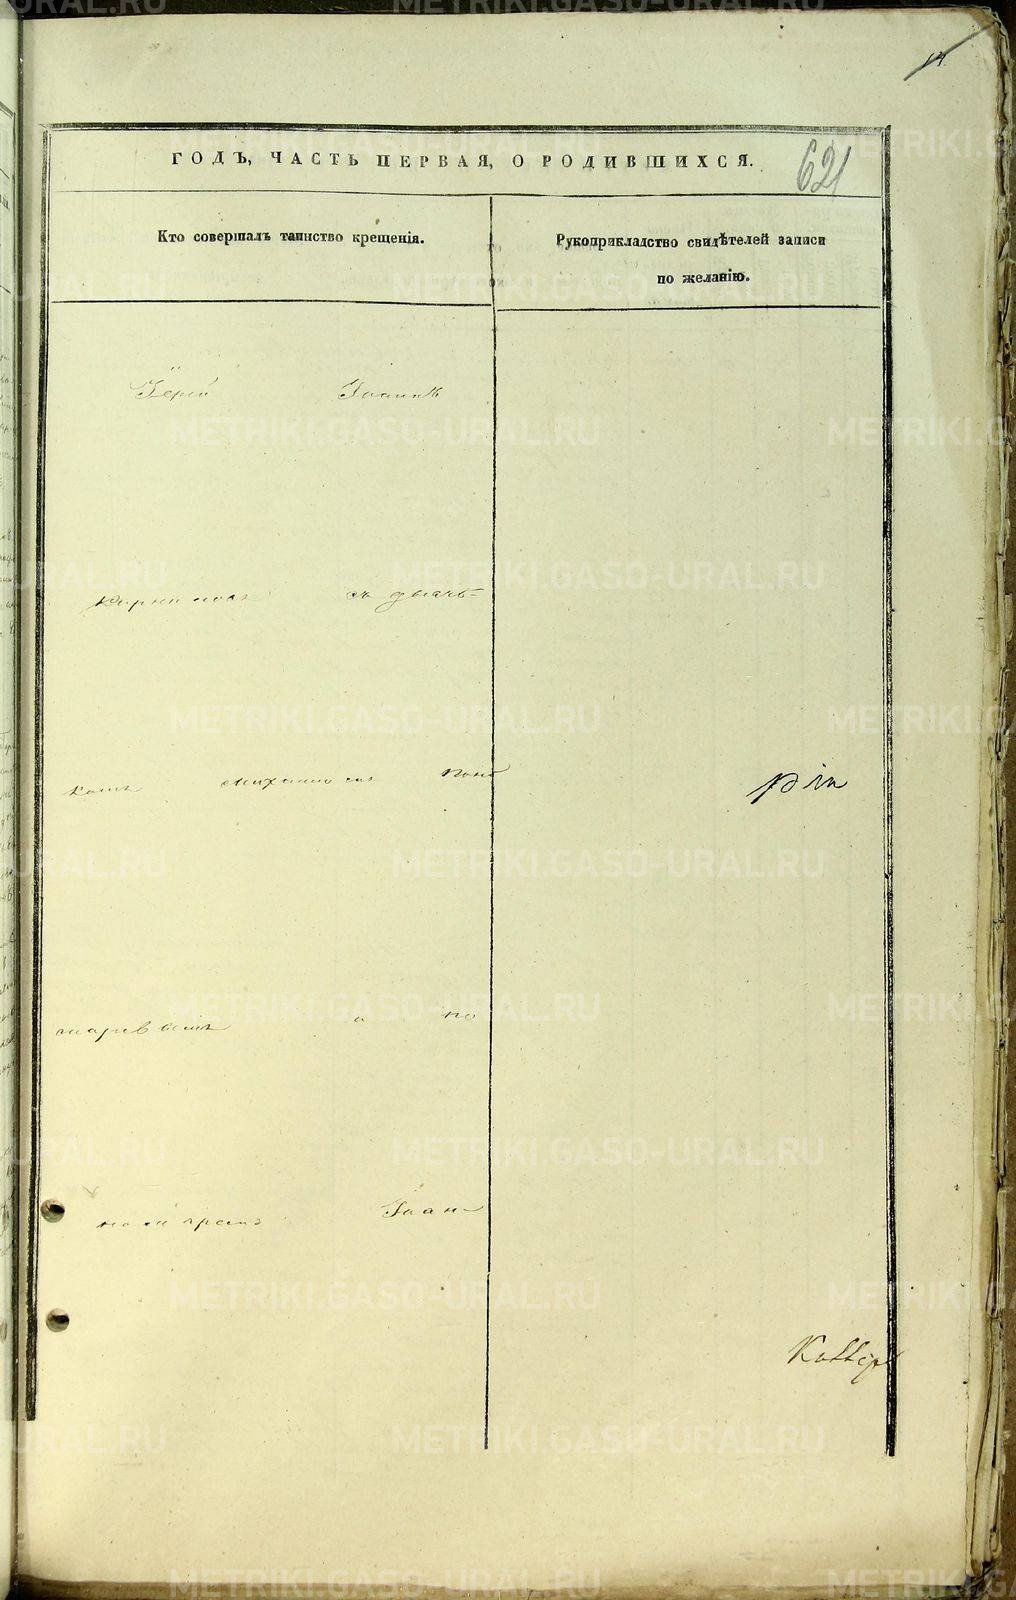 ГОДЪ, ЧАСТЬ ПЕРВАЯ, О РОДИВШИХСЯ.
621
Кто совершалъ таинство крещенія.
Рукоприкладство свидѣтелей записи
по желанію.
Іерей Іоаннъ
съ дьяч-
комъ Михаиломъ Поно
маревымъ и по
номаремъ Іоан-
METRIKI.GASO-URAL.RU